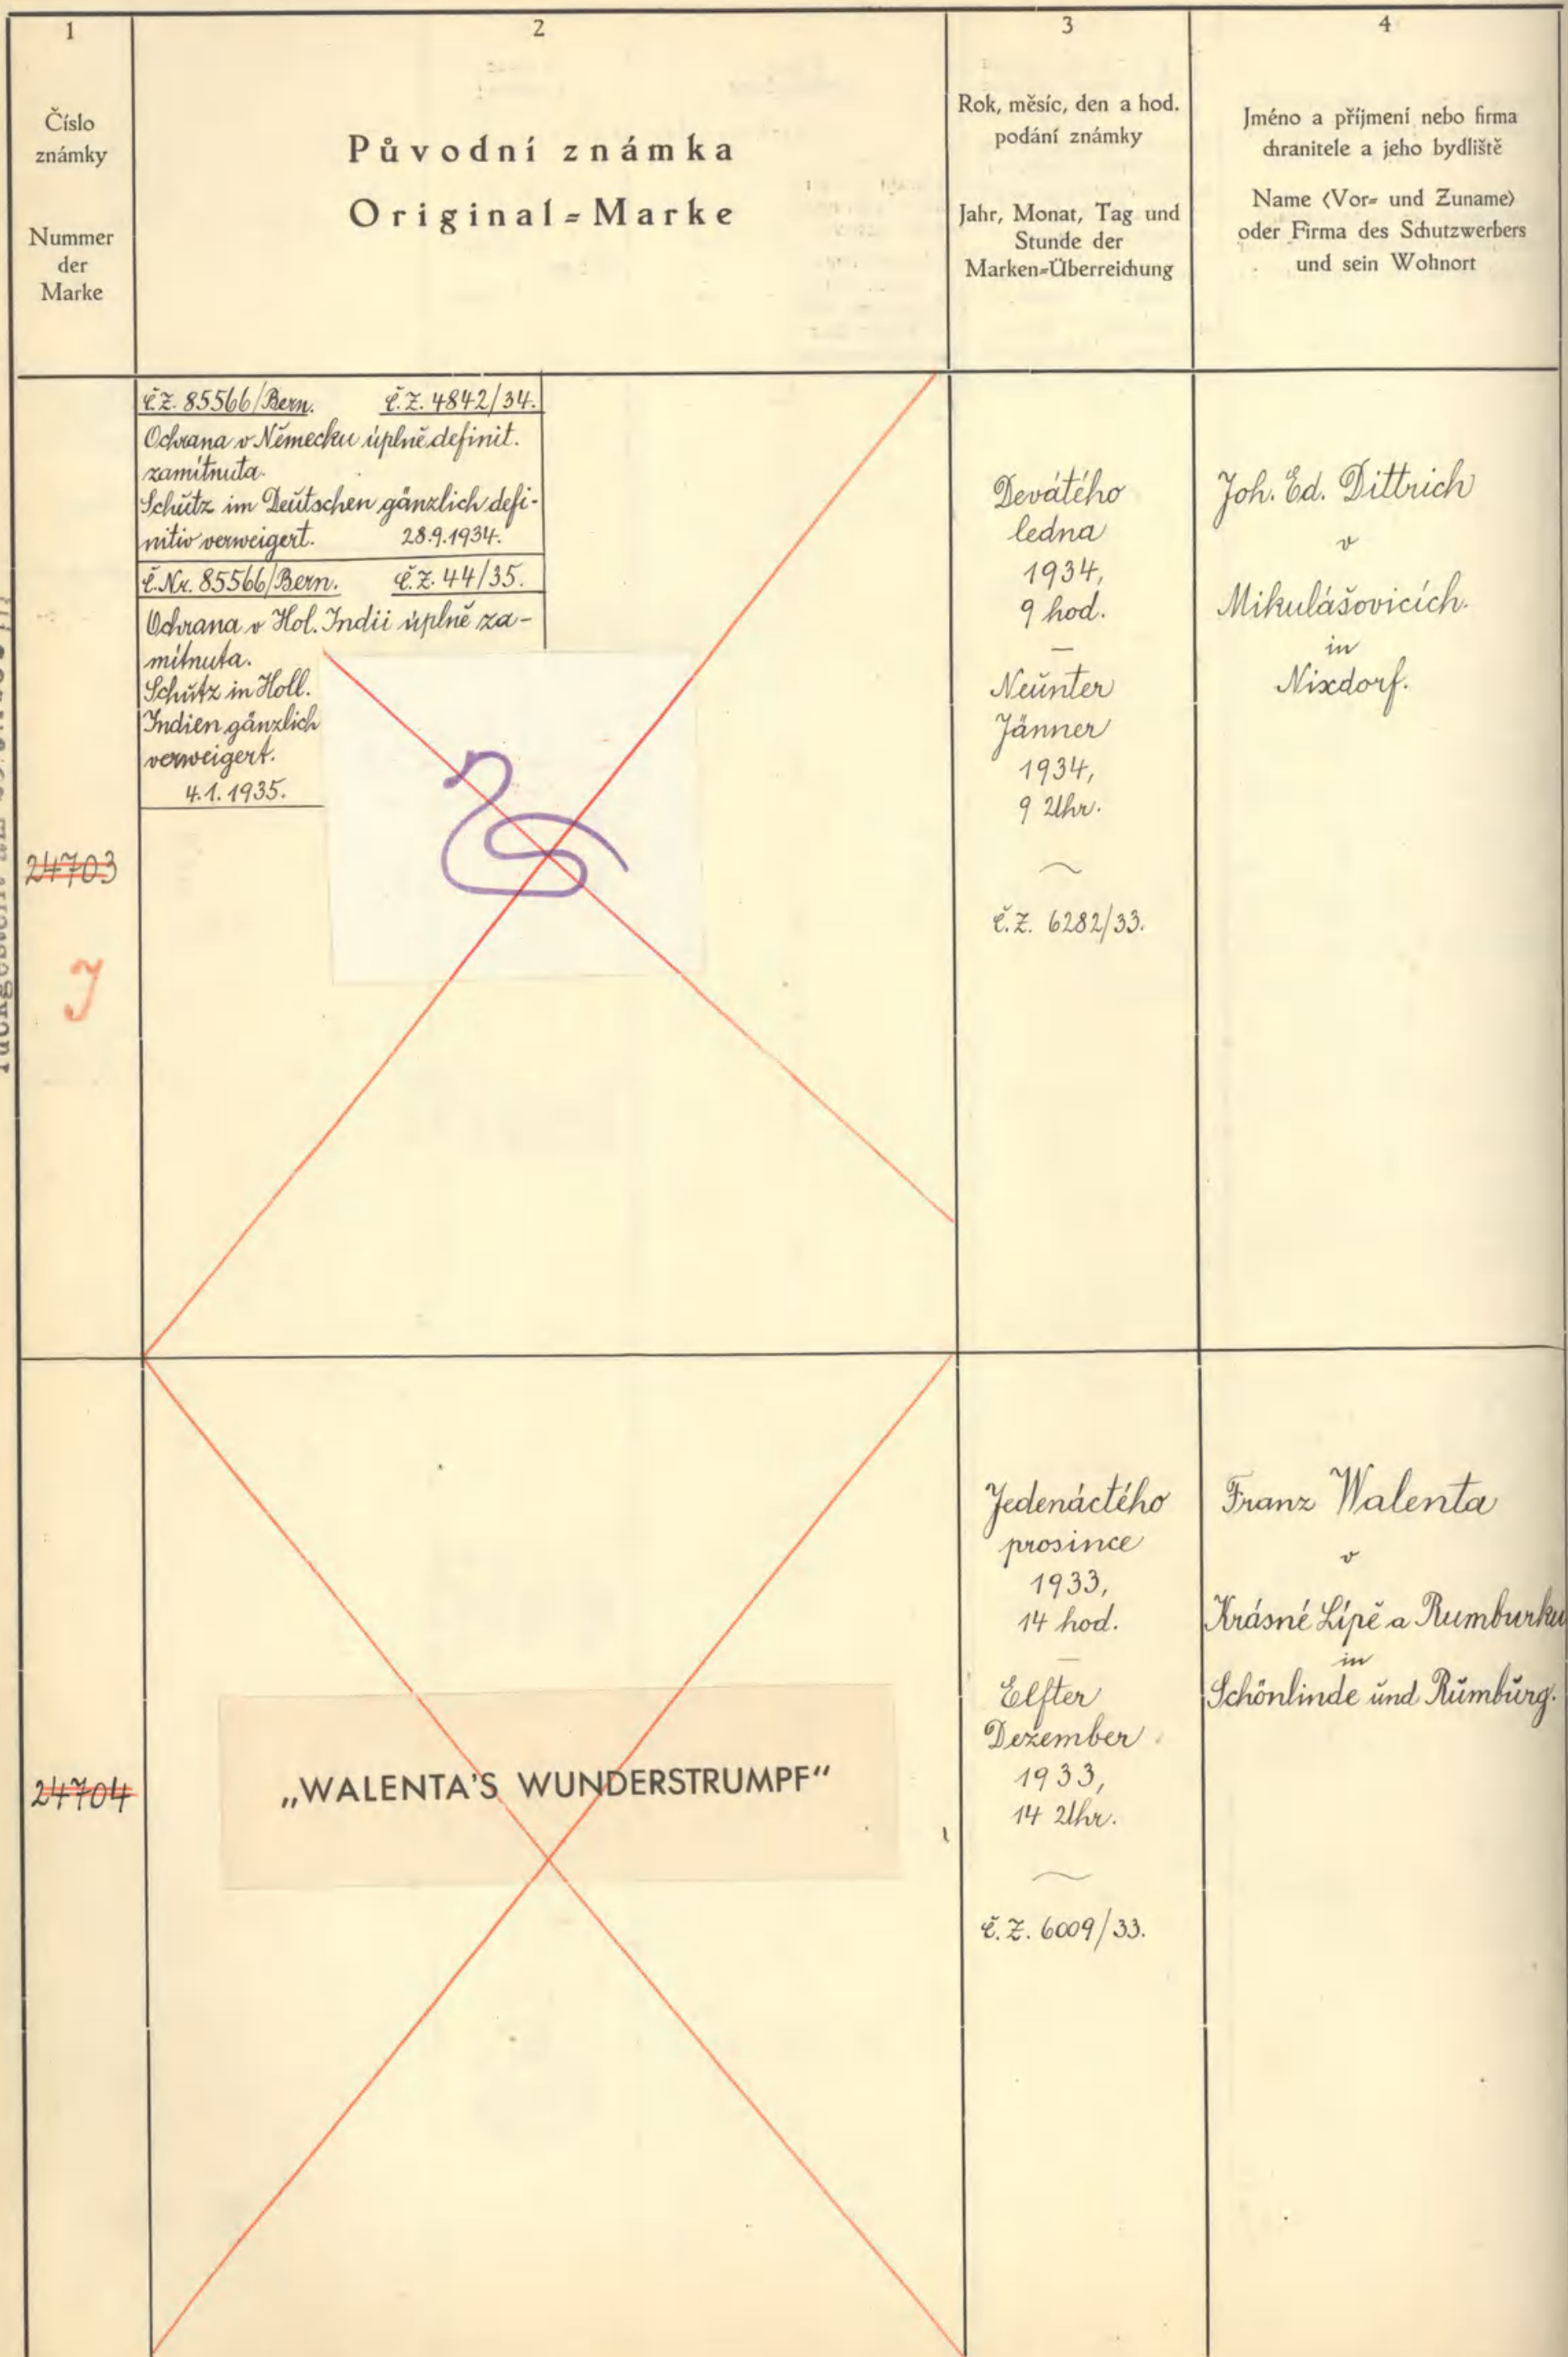 1
Číslo
známky
Nummer
der
Marke
2
Původní známka
Original=Marke
3
Rok, měsíc, den a hod.
podání známky
Jahr, Monat, Tag und
Stunde der
Marken=Überreichung
4
Jméno a příjmení nebo firma
chranitele a jeho bydliště
Name (Vor= und Zuname)
oder Firma des Schutzwerbers
und sein Wohnort
24703
J
č.Z. 85566/Bern. č.Z. 4842/34.
Ochrana v Německu úplně definit.
zamítnuta.
Schŭtz im Deŭtschen gänzlich defi-
nitiv verweigert. 28.9.1934.
č.Nr. 85566/Bern. č.Z. 44/35.
Ochrana v Hol. Indii úplně za-
mítnuta.
Schŭtz in Holl.
Indien gänzlich
verweigert.
4.1.1935.
Devátého
ledna
1934,
9 hod.
—
Neŭnter
Jänner
1934,
9 Uhr.
č.Z. 6282/33.
Joh. Ed. Dittrich
v
Mikulášovicích.
in
Nixdorf.
24704
„WALENTA'S WUNDERSTRUMPF“
Jedenáctého
prosince
1933,
14 hod.
—
Elfter
Dezember
1933,
14 Uhr.
č.Z. 6009/33.
Franz Walenta
v
Krásné Lípě a Rumburku
in
Schönlinde ŭnd Rŭmbŭrg.